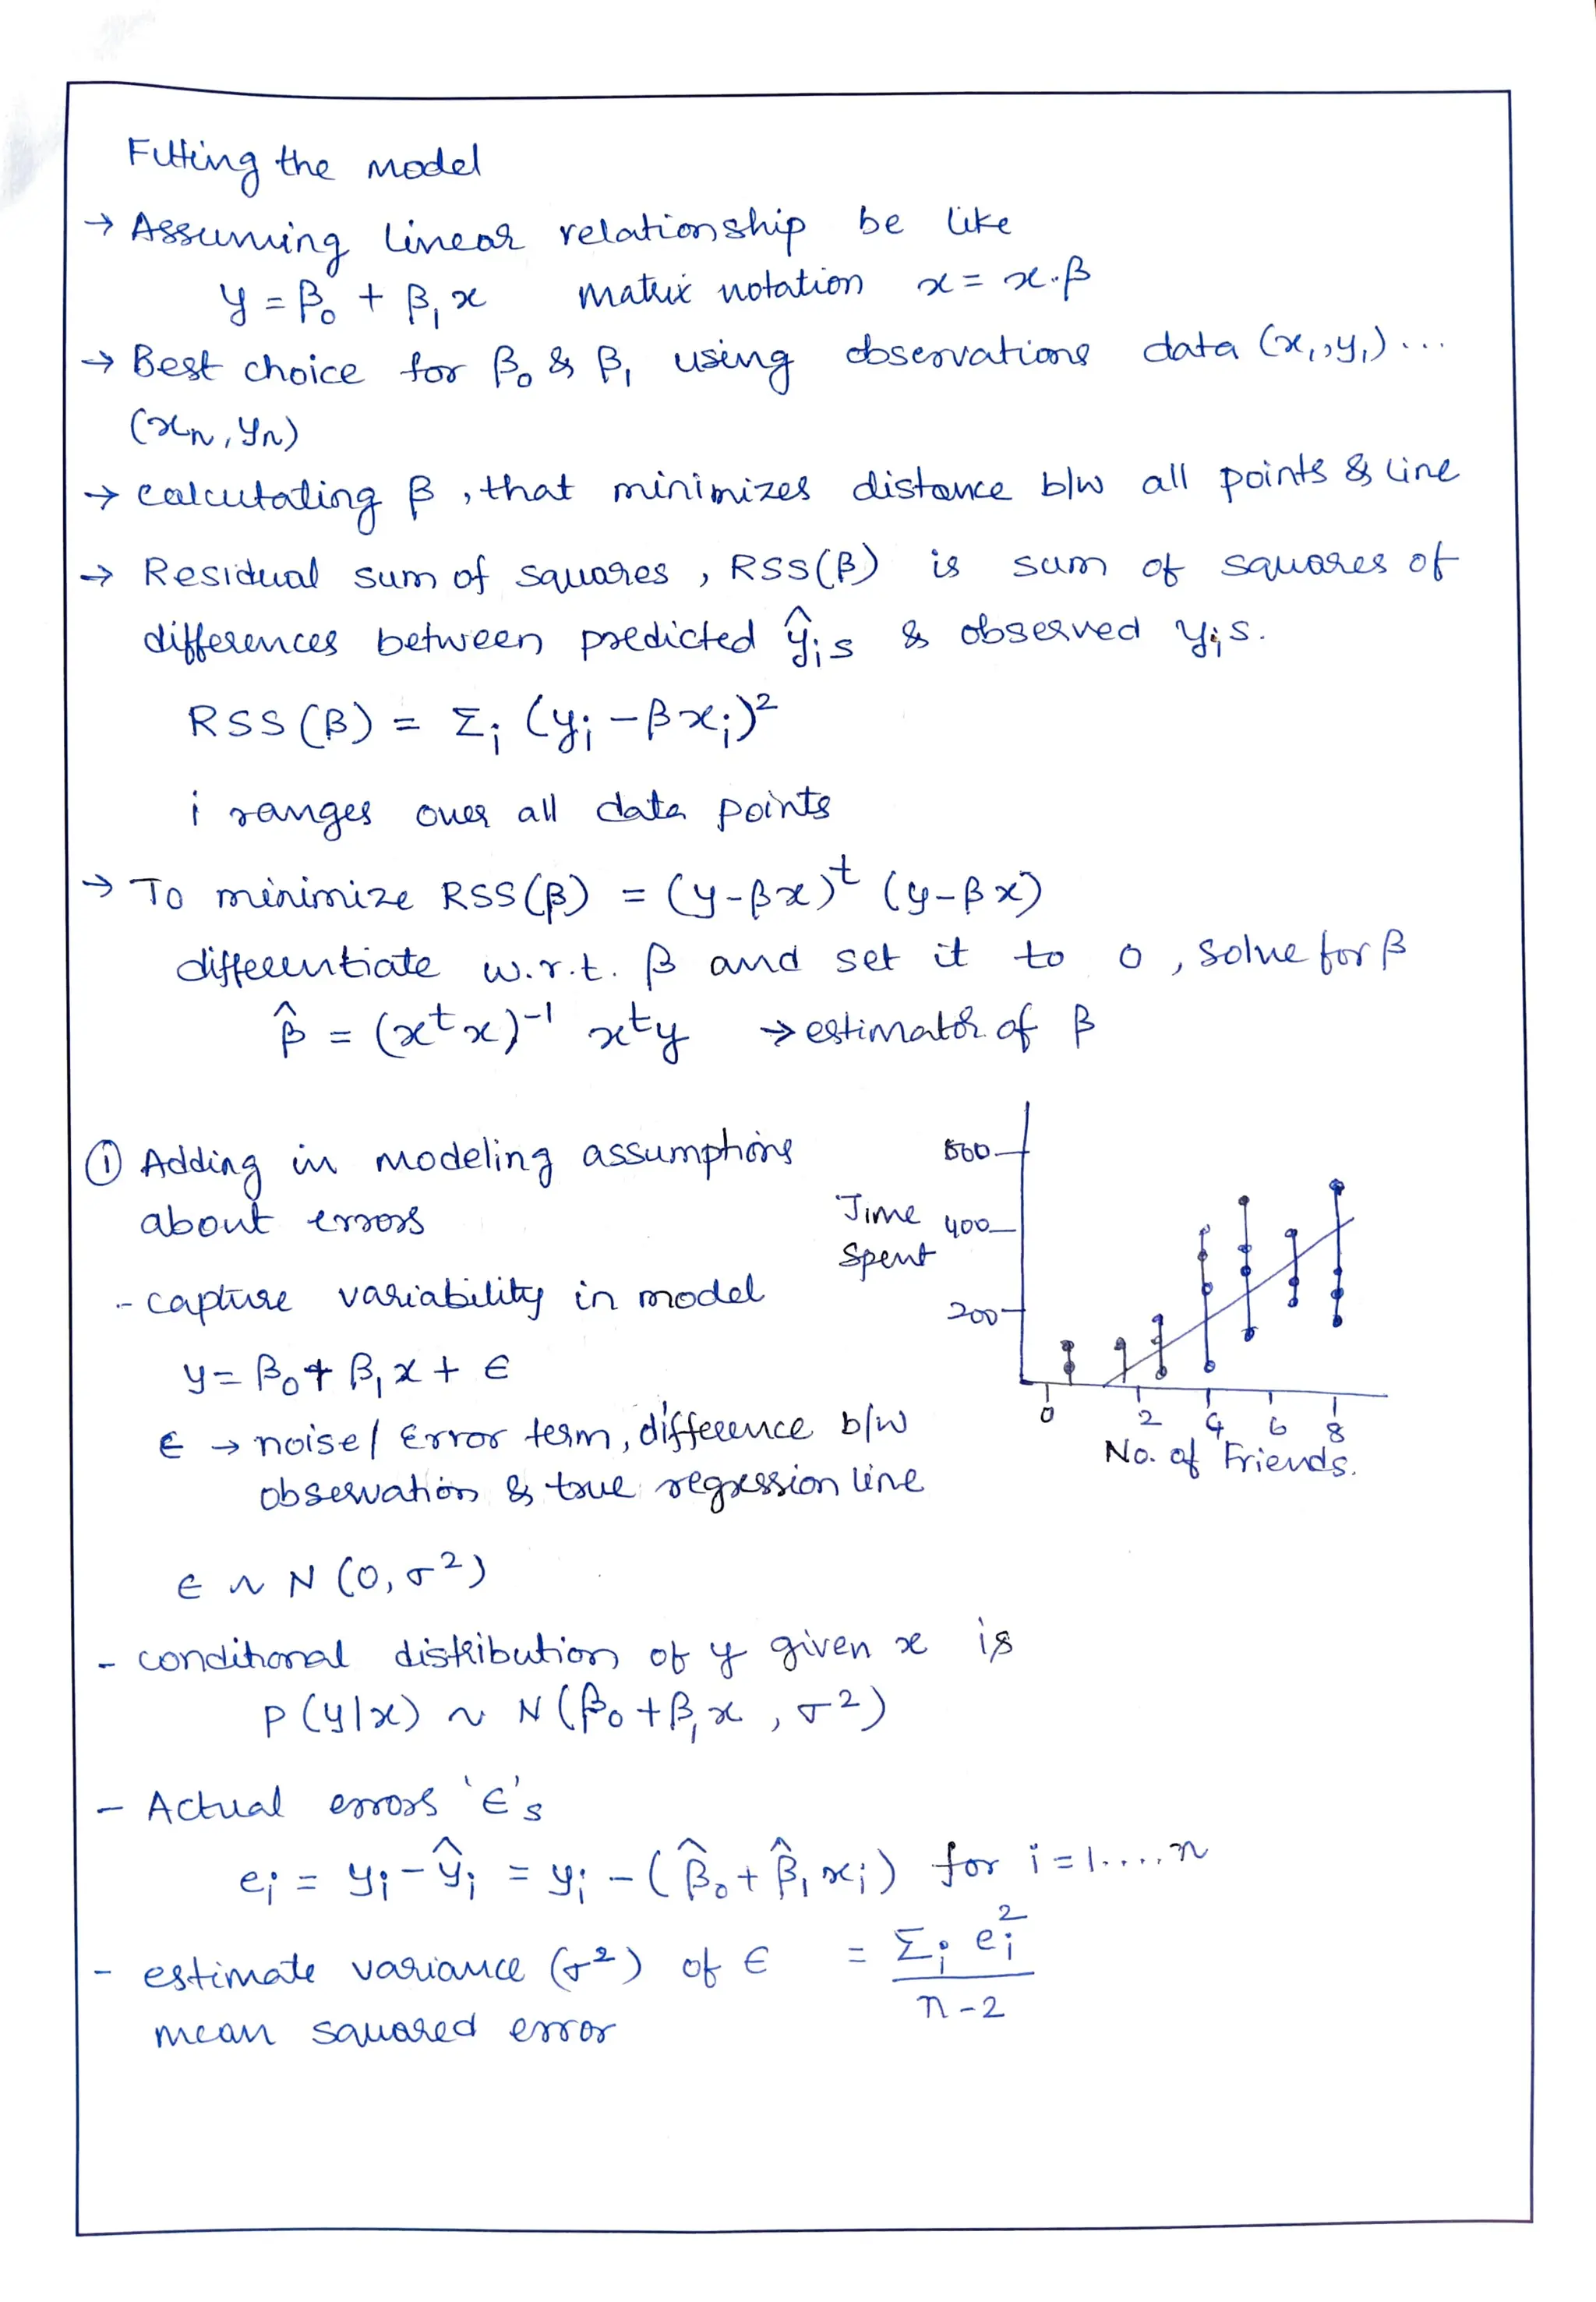 Fitting the model
→ Assuming linear relationship be like
y = β₀ + β₁x matrix notation x = x.β
→ Best choice for β₀ & β₁ using observations data (x₁,y₁) ...
(xn, yn)
→ calcutating β, that minimizes distance b/w all points & line
→ Residual sum of squares, RSS(β) is sum of squares of
differences between predicted ŷᵢs & observed yᵢs.
RSS(β) = Σᵢ (yᵢ - βxᵢ)²
i ranges over all data points
→ To minimize RSS(β) = (y-βx)ᵗ (y-βx)
differentiate w.r.t. β and set it to 0, solve for β
β̂ = (xᵗx)⁻¹ xᵗy → estimator of β
① Adding in modeling assumptions
about errors
- capture variability in model
y = β₀ + β₁x + ϵ
ϵ → noise/ Error term, difference b/w
observation & true regression line
ϵ ~ N (0, σ²)
- conditional distribution of y given x is
P(y|x) ~ N(β₀+β₁x, σ²)
- Actual errors 'ϵ's
eᵢ = yᵢ - ŷᵢ = yᵢ - (β̂₀ + β̂₁xᵢ) for i = 1....n
- estimate variance (σ²) of ϵ = Σᵢ eᵢ²
n-2
mean squared error
Time
Spent
400
200
0 2 4 6 8
No. of Friends.